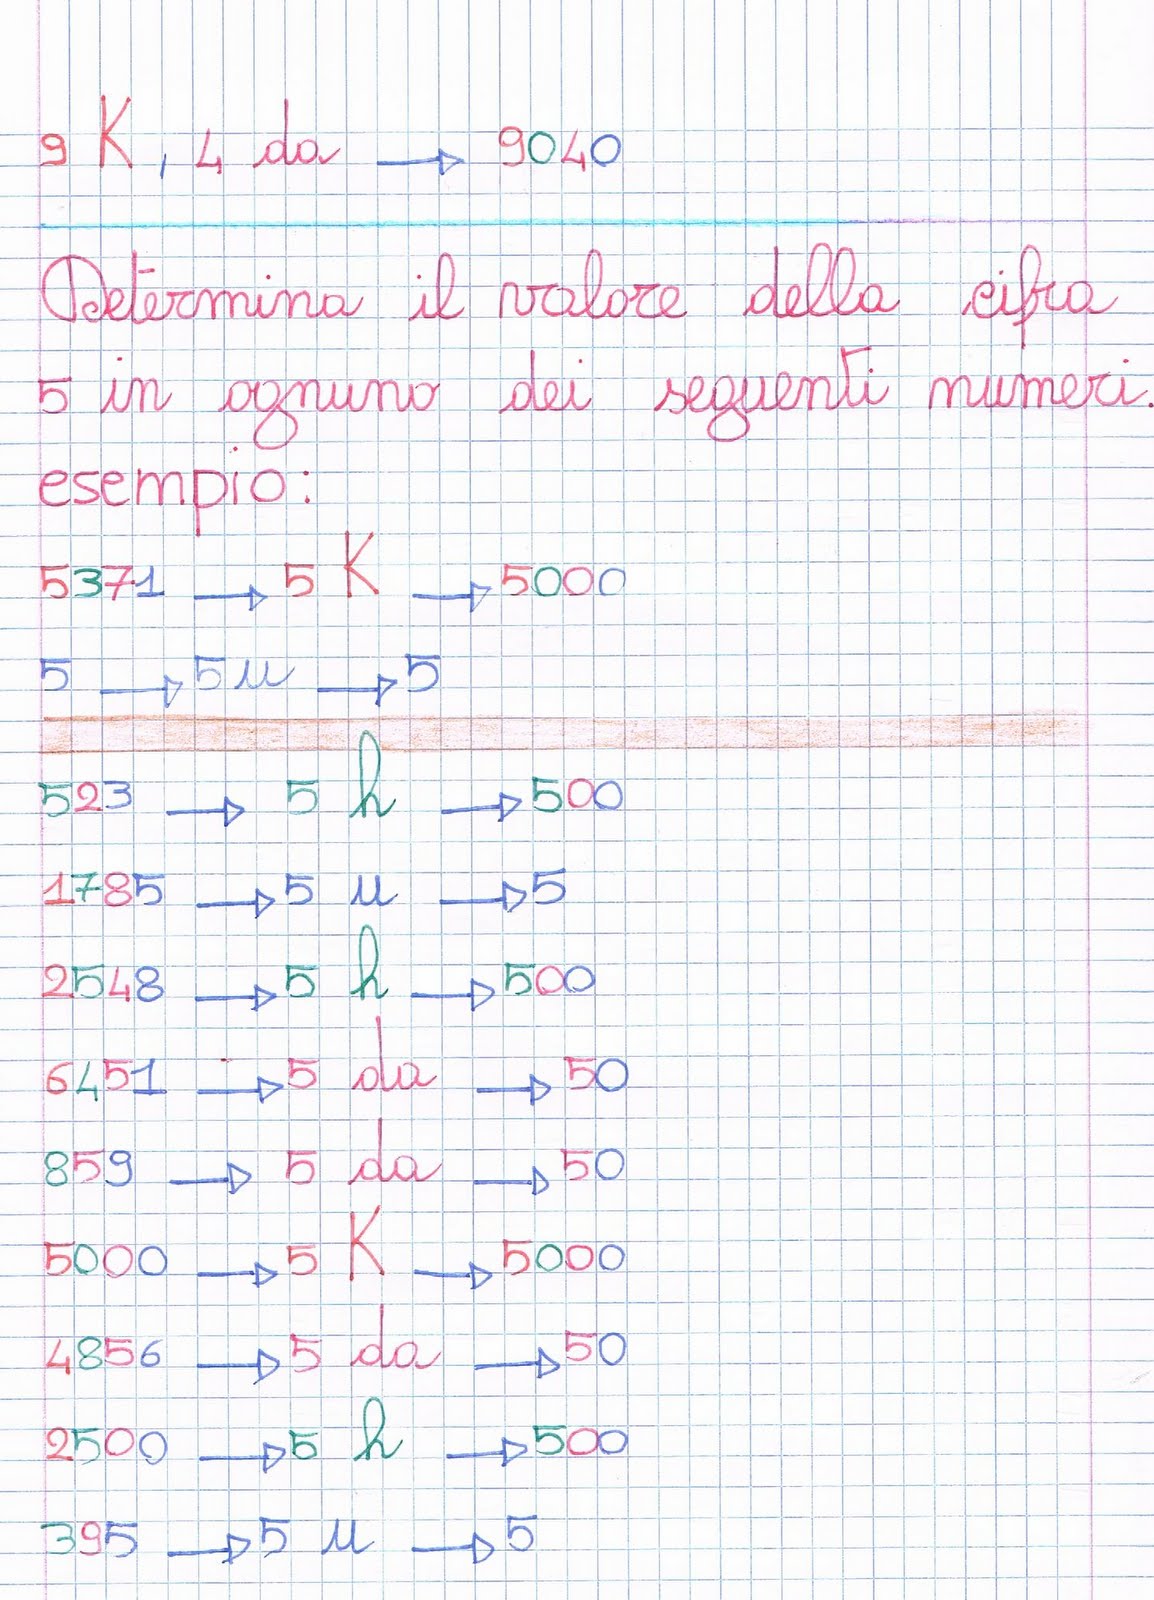 9 K, 4 da → 9040
Determina il valore della cifra
5 in ognuno dei seguenti numeri.
esempio:
5371 → 5 K → 5000
5 → 5 u → 5
523 → 5 h → 500
1785 → 5 u → 5
2548 → 5 h → 500
6451 → 5 da → 50
859 → 5 da → 50
5000 → 5 K → 5000
4856 → 5 da → 50
2500 → 5 h → 500
395 → 5 u → 5